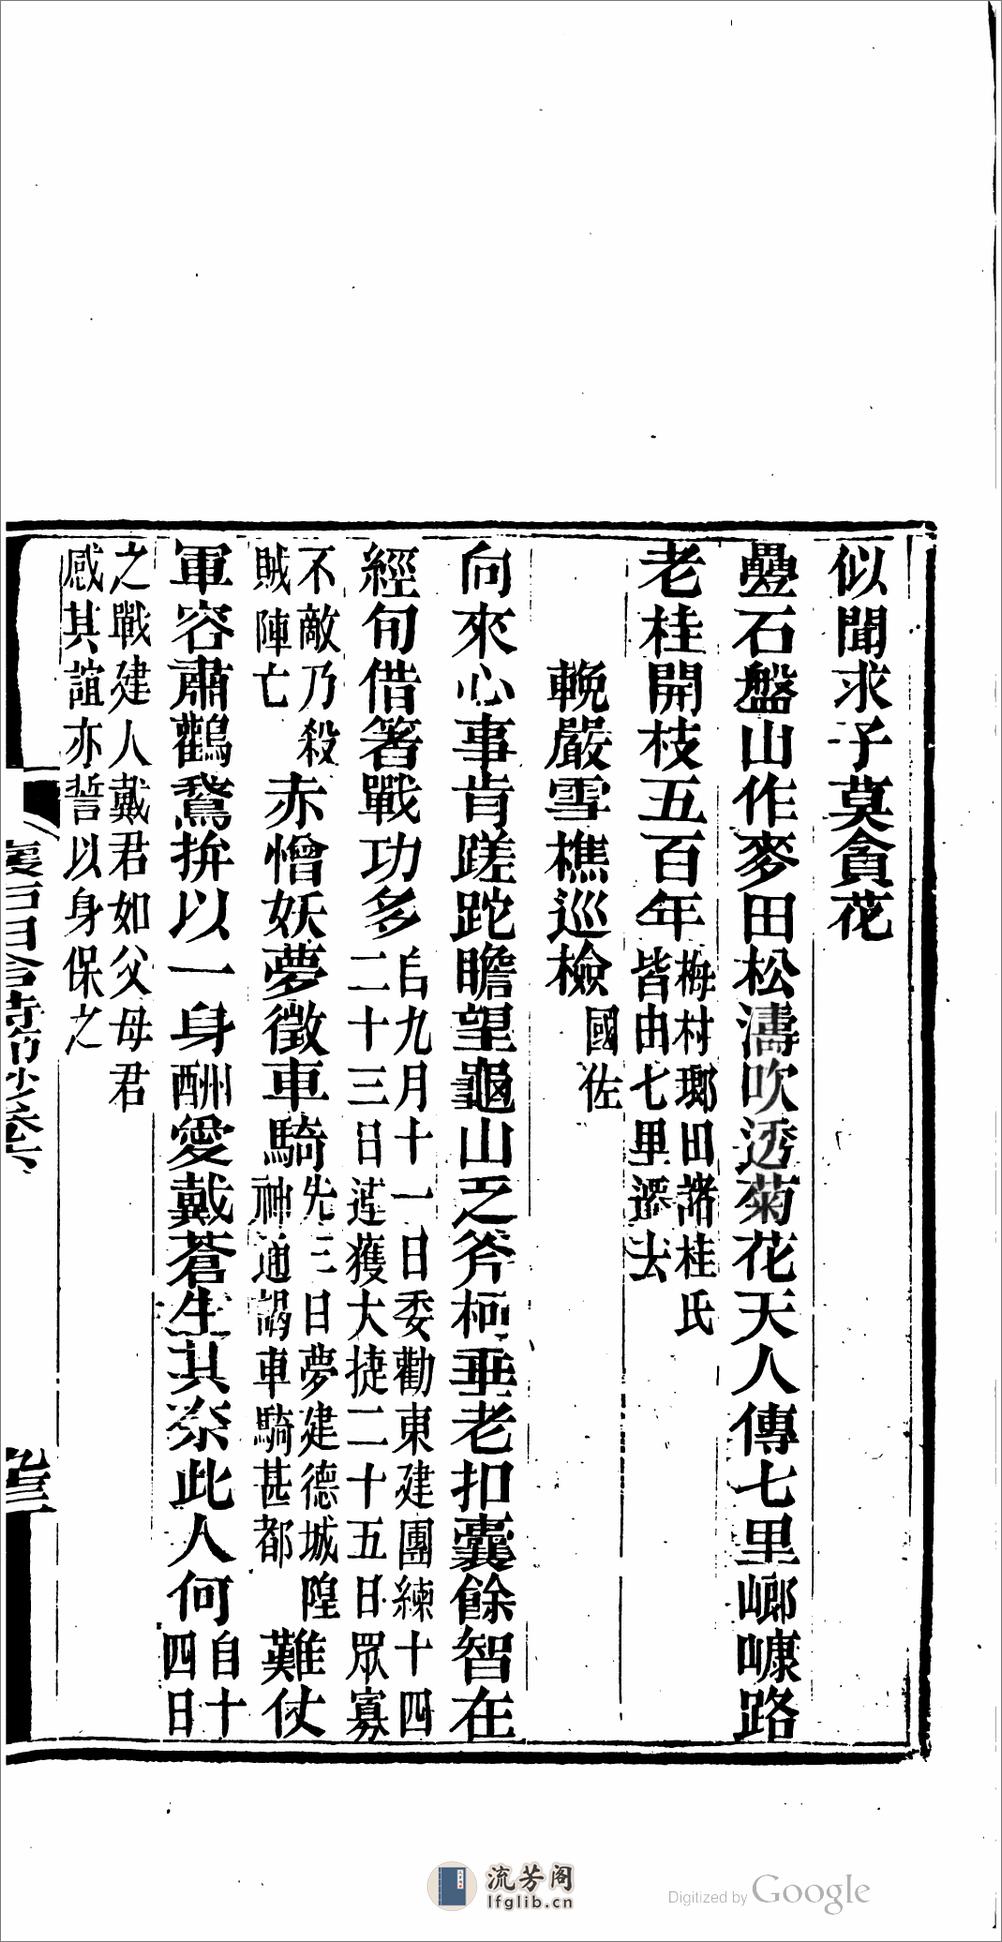 似聞求子莫貪花
疊石盤山作麥田松濤吹透菊花天人傳七里嶂㟍路
老桂開枝五百年梅村瑯田諸桂氏
皆由七里遷去
輓嚴雪樵巡檢國佐
向來心事肯蹉跎瞻望龜山乏斧柯垂老扣囊餘智在
經旬借箸戰功多自九月十一日委勸東建團練十四
二十三日迭獲大捷二十五日眾寡
不敵乃殺
賊陣亡赤憎妖夢徵車騎先三日夢建德城隍
神通謁車騎甚都難仗
軍容肅鸛鵞拚以一身酬愛戴蒼生其奈此人何自十
四日
之戰建人戴君如父母君
感其誼亦誓以身保之
懷古田舍詩節鈔卷六
流芳阁
lfglib.cn
Digitized by Google